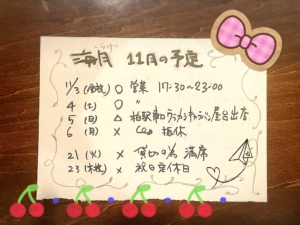 海月 11月の予定
11/3(金祝) ○ 営業 17:30~23:00
4(土) ○ 〃
5(日) △ 柏駅東口 キッチンカー 屋台出店
6(月) × 振休
21(火) × 貸切の為 満席
23(木祝) × 祝日定休日